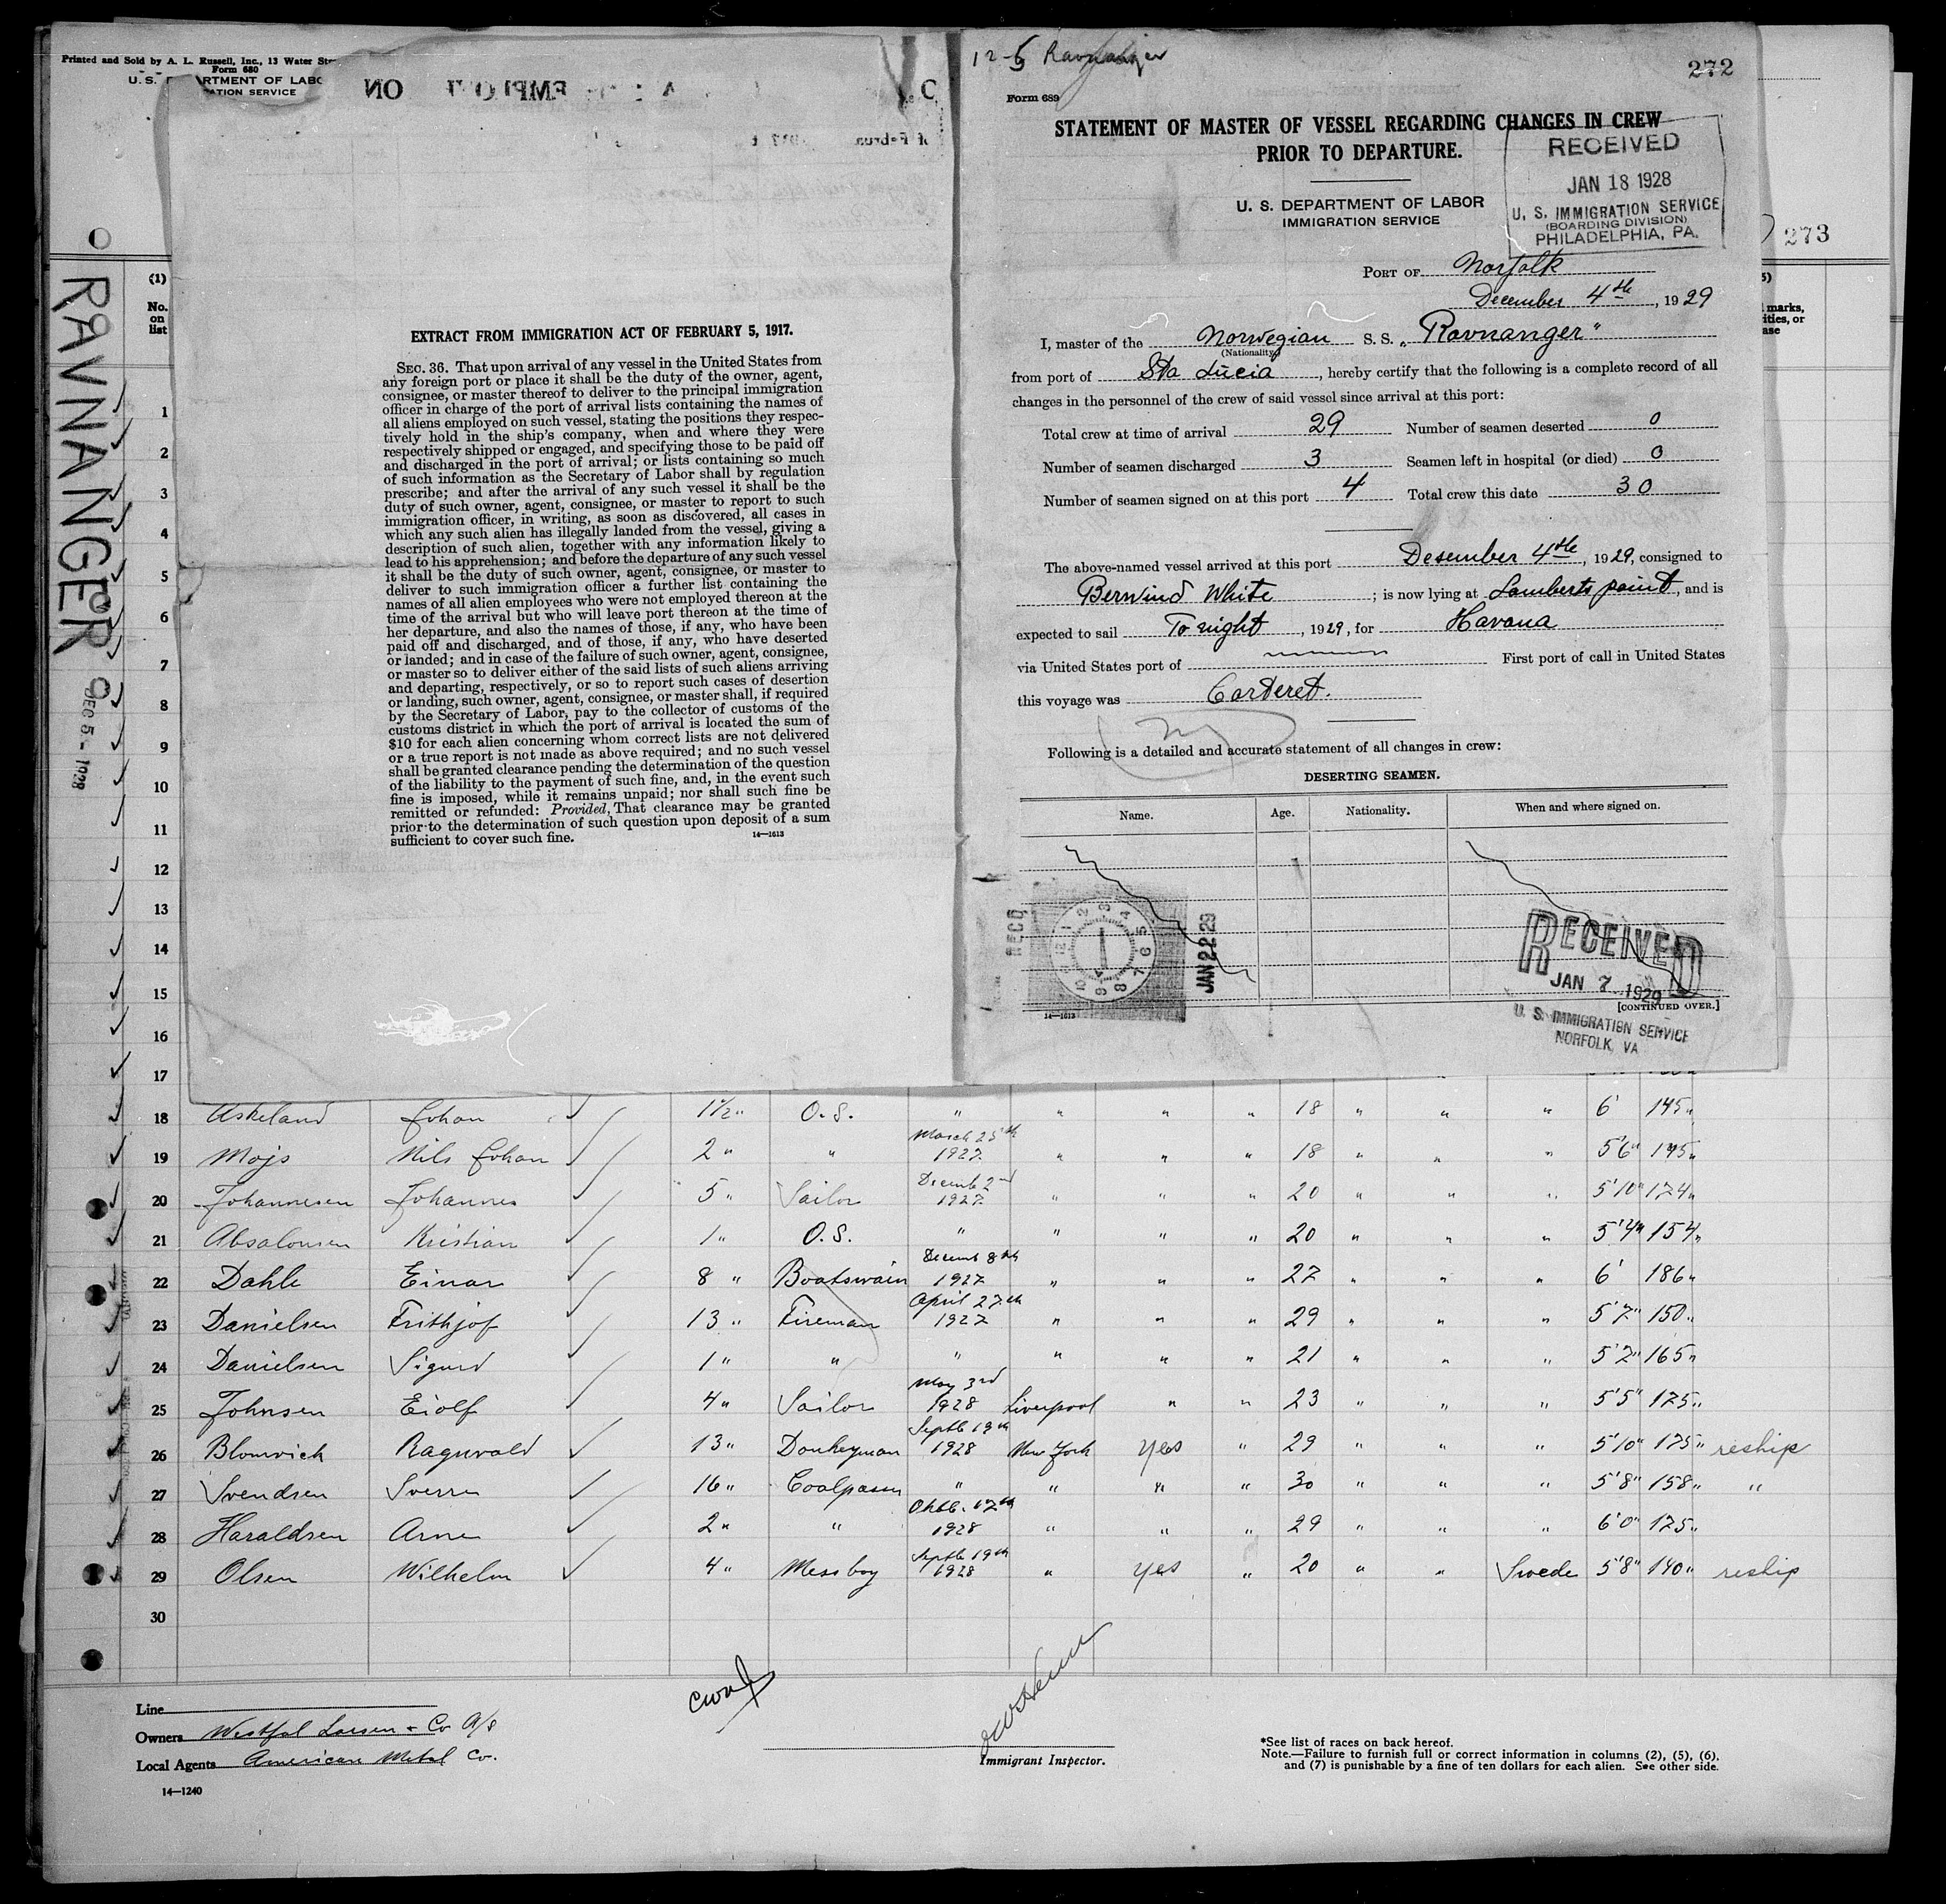 Printed and Sold by A. L. Russell, Inc., 13 Water
Form 680
U. S. DEPARTMENT OF LABOR
IMMIGRATION SERVICE
RAVNANGER
DEC 5 - 1928
(1)
No. on list
EXTRACT FROM IMMIGRATION ACT OF FEBRUARY 5, 1917.
SEC. 36. That upon arrival of any vessel in the United States from
any foreign port or place it shall be the duty of the owner, agent,
consignee, or master thereof to deliver to the principal immigration
officer in charge of the port of arrival lists containing the names of
all aliens employed on such vessel, stating the positions they respec-
tively hold in the ship's company, when and where they were
respectively shipped or engaged, and specifying those to be paid off
and discharged in the port of arrival; or lists containing so much
of such information as the Secretary of Labor shall by regulation
prescribe; and after the arrival of any such vessel it shall be the
duty of such owner, agent, consignee, or master to report to such
immigration officer, in writing, as soon as discovered, all cases in
which any such alien has illegally landed from the vessel, giving a
description of such alien, together with any information likely to
lead to his apprehension; and before the departure of any such vessel
it shall be the duty of such owner, agent, consignee, or master to
deliver to such immigration officer a further list containing the
names of all alien employees who were not employed thereon at the
time of the arrival but who will leave port thereon at the time of
her departure, and also the names of those, if any, who have been
paid off and discharged, and of those, if any, who have deserted
or landed; and in case of the failure of such owner, agent, consignee,
or master so to deliver either of the said lists of such aliens arriving
and departing, respectively, or so to report such cases of desertion
or landing, such owner, agent, consignee, or master shall, if required
by the Secretary of Labor, pay to the collector of customs of the
customs district in which the port of arrival is located the sum of
$10 for each alien concerning whom correct lists are not delivered
or a true report is not made as above required; and no such vessel
shall be granted clearance pending the determination of the question
of the liability to the payment of such fine, and, in the event such
fine is imposed, while it remains unpaid; nor shall such fine be
remitted or refunded: Provided, That clearance may be granted
prior to the determination of such question upon deposit of a sum
sufficient to cover such fine.
14—1613
12-5 Ravnanger
272
Form 689
STATEMENT OF MASTER OF VESSEL REGARDING CHANGES IN CREW
PRIOR TO DEPARTURE.
U. S. DEPARTMENT OF LABOR
IMMIGRATION SERVICE
RECEIVED
JAN 18 1928
U. S. IMMIGRATION SERVICE
(BOARDING DIVISION)
PHILADELPHIA, PA.
273
PORT OF Norfolk
December 4th, 1929
I, master of the Norwegian S. S. „Ravnanger"
(Nationality)
from port of Sta Lucia, hereby certify that the following is a complete record of all
changes in the personnel of the crew of said vessel since arrival at this port:
Total crew at time of arrival 29 Number of seamen deserted 0
Number of seamen discharged 3 Seamen left in hospital (or died) 0
Number of seamen signed on at this port 4 Total crew this date 30
The above-named vessel arrived at this port Desember 4th, 1929, consigned to
Berwind White; is now lying at Lamberts point, and is
expected to sail To night, 1929, for Havana
via United States port of First port of call in United States
this voyage was Carteret.
Following is a detailed and accurate statement of all changes in crew:
DESERTING SEAMEN.
Name. Age. Nationality. When and where signed on.
REC'D
JAN 22 29
RECEIVED
JAN 7 1929
[CONTINUED OVER.]
14—1613
U. S. IMMIGRATION SERVICE
NORFOLK, VA
1
2
3
4
5
6
7
8
9
10
11
12
13
14
15
16
17
18 Askeland Johan 1½" O.S. " " " " 18 " " " 6' 145"
19 Mojs Nils Johan 2" " March 25th 1927 " " " 18 " " " 5'6" 145"
20 Johannesen Johannes 5" Sailor Decemb 2nd 1927 " " " 20 " " " 5'10" 174"
21 Absalonsen Kristian 1" O.S. " " " " 20 " " " 5'4" 154"
22 Dahle Einar 8" Boatswain Decemb 8th 1927 " " " 27 " " " 6' 186"
23 Danielsen Frithjof 13" Fireman April 27th 1927 " " " 29 " " " 5'7" 150"
24 Danielsen Sigurd 1" " " " " " 21 " " " 5'7" 165"
25 Johnsen Eiolf 4" Sailor May 3rd 1928 Liverpool " " 23 " " " 5'5" 175"
26 Blomvich Ragnvald 13" Donkeyman Septb 19th 1928 New York yes " 29 " " " 5'10" 175" reship
27 Svendsen Sverre 16" Coalpasser " " " " 30 " " " 5'8" 158" "
28 Haraldsen Arne 2" " Oktb. 17th 1928 " " " 29 " " " 6'0" 175"
29 Olsen Wilhelm 4" Messboy Septb 19th 1928 " yes " 20 " " Swede 5'8" 140" reship
30
Line
Owners Westfal Larsen & Co A/S
Local Agents American Metal Co.
14—1240
Immigrant Inspector.
*See list of races on back hereof.
Note.—Failure to furnish full or correct information in columns (2), (5), (6),
and (7) is punishable by a fine of ten dollars for each alien. See other side.